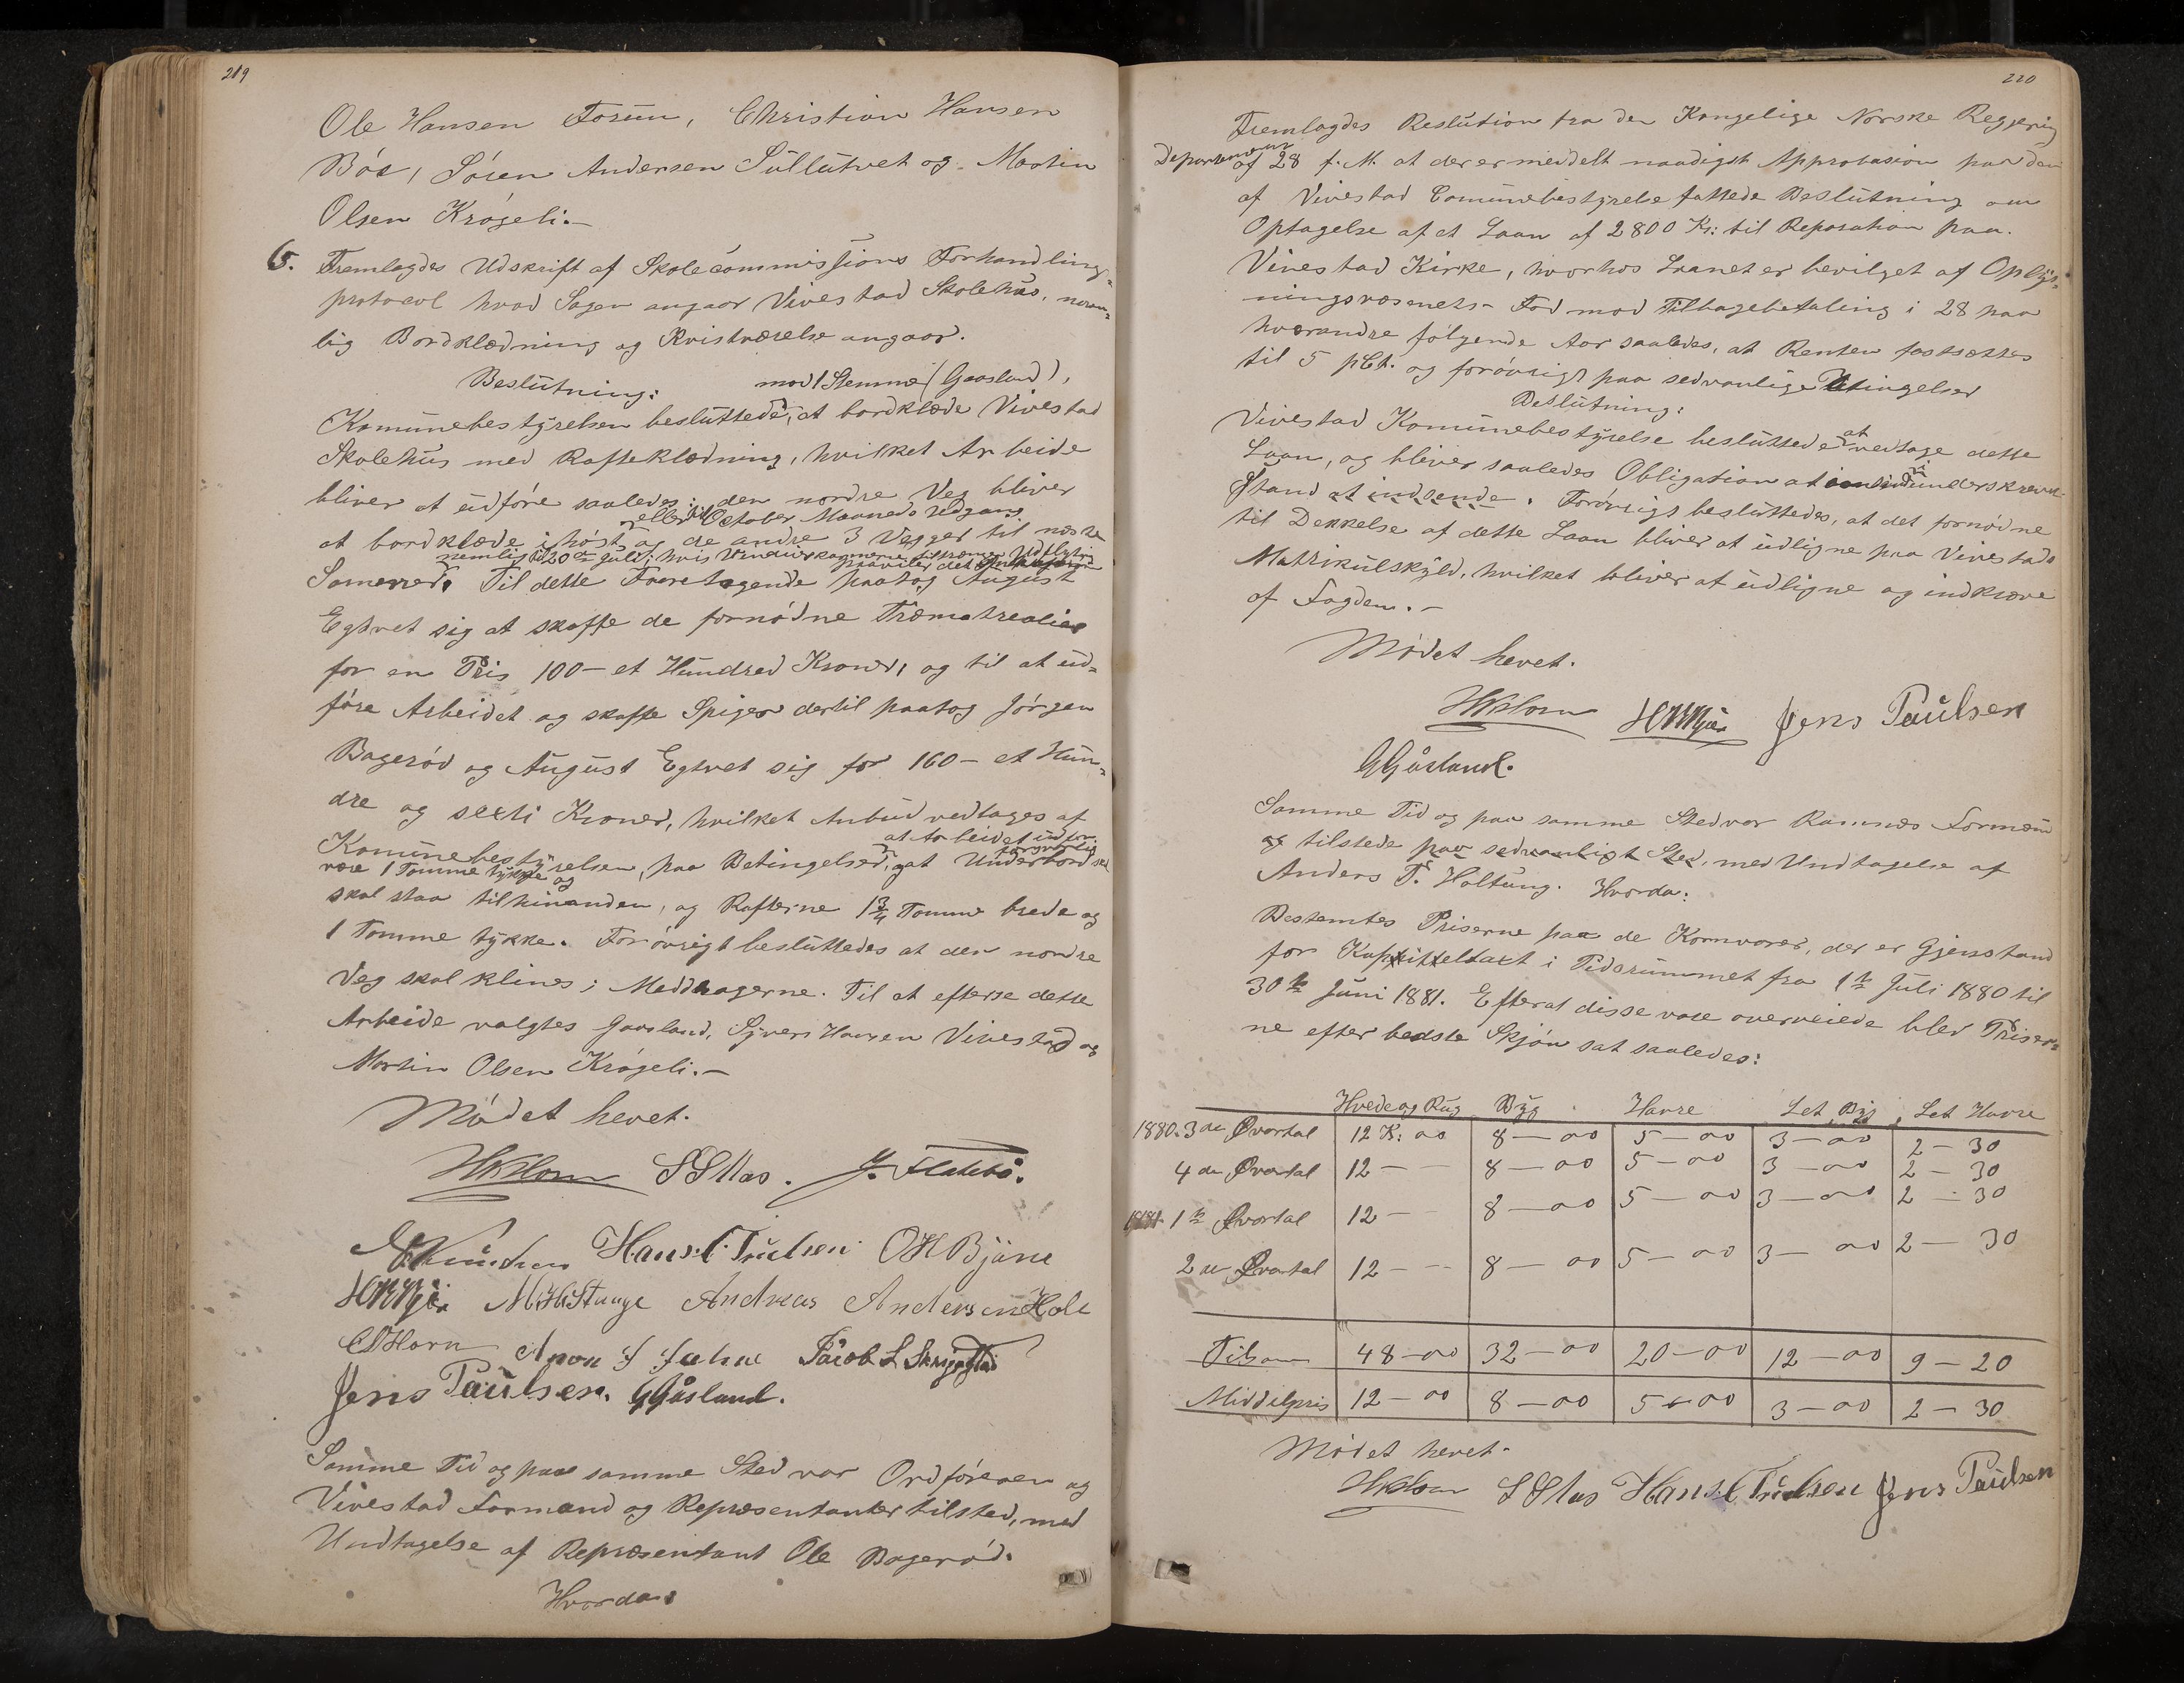 219
Ole Hansen Fossum, Christian Hansen
Bös, Sören Andersen Sullutvet og Martin
Olsen Krögeli.—
6. Fremlagdes Udskrift af Skolecommissions Forhandlings=
protocol hvad Sagen angaar Vivestad Skolehus, nem=
lig Bordklædning og Kvistværelse angaar.
Beslutning: mod 1 Stemme (Gaasland),
Komunebestyrelsen besluttede, at bordklæde Vivestad
Skolehus med Rafteklædning, hvilket Arbeide
bliver at udföre saaledes: den nordre Veg bliver
eller til October Maaneds Udgang
at bordklæde i höst, og de andre 3 Vegger til næste
nemlig til 20de Juli; hvis Vinduerkarmene tiltrænger Udflytning
paaviler det
Sommer. Til dette Foretagende paatog August
Egtvet sig at skaffe de fornödne Træmatrealier
for en Pris 100— et Hundred Kroner, og til at ud=
före Arbeidet og skaffe Spiger dertil paatog Jörgen
Bageröd og August Egtvet sig for 160— et Hun=
dre og sexti Kroner, hvilket Anbud vedtages af
at Arbeidet udföres forsvarlig
Komunebestyrelsen, paa Betingelser, at Underbord skal
være 1 Tomme tykke og
skal staa til hinanden, og Rafterne 1 3/4 Tomme brede og
1 Tomme tykke. Forövrigt besluttedes at den nordre
Veg skal klines i Meddragerne. Til at efterse dette
Arbeide valgtes Gaasland, Syvert Hansen Vivestad og
Martin Olsen Krögeli.—
Mödet hevet.
HKlom SSAas. J. Flatebö.
Knudsen Hans C. Trulsen OH Bjune
M HStange Andreas Andersen Holt
CAHorn Aron J Jahne Jacob L Skrygstad
Jens Paulsen. GGåsland.
Samme Tid og paa samme Sted var Ordföreren og
Vivestad Formænd og Repræsentanter tilsted, med
Undtagelse af Repræsentant Ole Bageröd.
Hvorda:
220
Fremlagdes Reslution fra den Kongelige Norske Regjering
Departement af 28 f. M. at der er meddelt naadigst Approbasion paa den
af Vivestad Comunebestyrelse fattede Beslutning om
Optagelse af et Laan af 2800 Kr: til Reparation paa
Vivestad Kirke, hvorhos Laanet er bevilget af Oplys=
ningsvæsnets Fod mod Tilbagebetaling i 28 paa
hverandre fölgende Aar saaledes, at Renten fastsættes
til 5 pCt. og forövrigt paa sedvanlige Betingelser
Beslutning:
Vivestad Komunebestyrelse besluttede at vedtage dette
Laan, og bliver saaledes Obligation at i underskreven
Stand at indsende. Forövrigt besluttedes, at det fornödne
til Dekkelse af dette Laan bliver at udligne paa Vivestads
Matrikulskyld, hvilket bliver at udligne og indkræve
af Fogden.—
Mödet hevet.
HKlom Jens Paulsen
GGåsland.
Samme Tid og paa samme Sted var Ramnæs Formænd
og tilstede paa sedvanligt Sted, med Undtagelse af
Anders T. Holtung. Hvorda:
Bestemtes Priserne paa de Kornvarer, der er Gjenstand
for Kapittelstaxt i Tidsrummet fra 1te Juli 1880 til
30te Juni 1881. Efterat disse vare overveiede blev Priser=
ne efter bedste Skjön sat saaledes:
Hvede og Rug Byg Havre Let Byg Let Havre
1880. 3de Qvartal 12 K: 00 8—00 5—00 3—00 2—30
4de Qvartal 12—— 8—00 5—00 3—00 2—30
1881. 1te Qvartal 12—— 8—00 5—00 3—00 2—30
2de Qvartal 12—— 8—00 5—00 3—00 2—30
Tilsam 48—00 32—00 20—00 12—00 9—20
Middelpris 12—00 8—00 5—00 3—00 2—30
Mödet hevet.
HKlom SSAas Hans C Trulsen Jens Paulsen